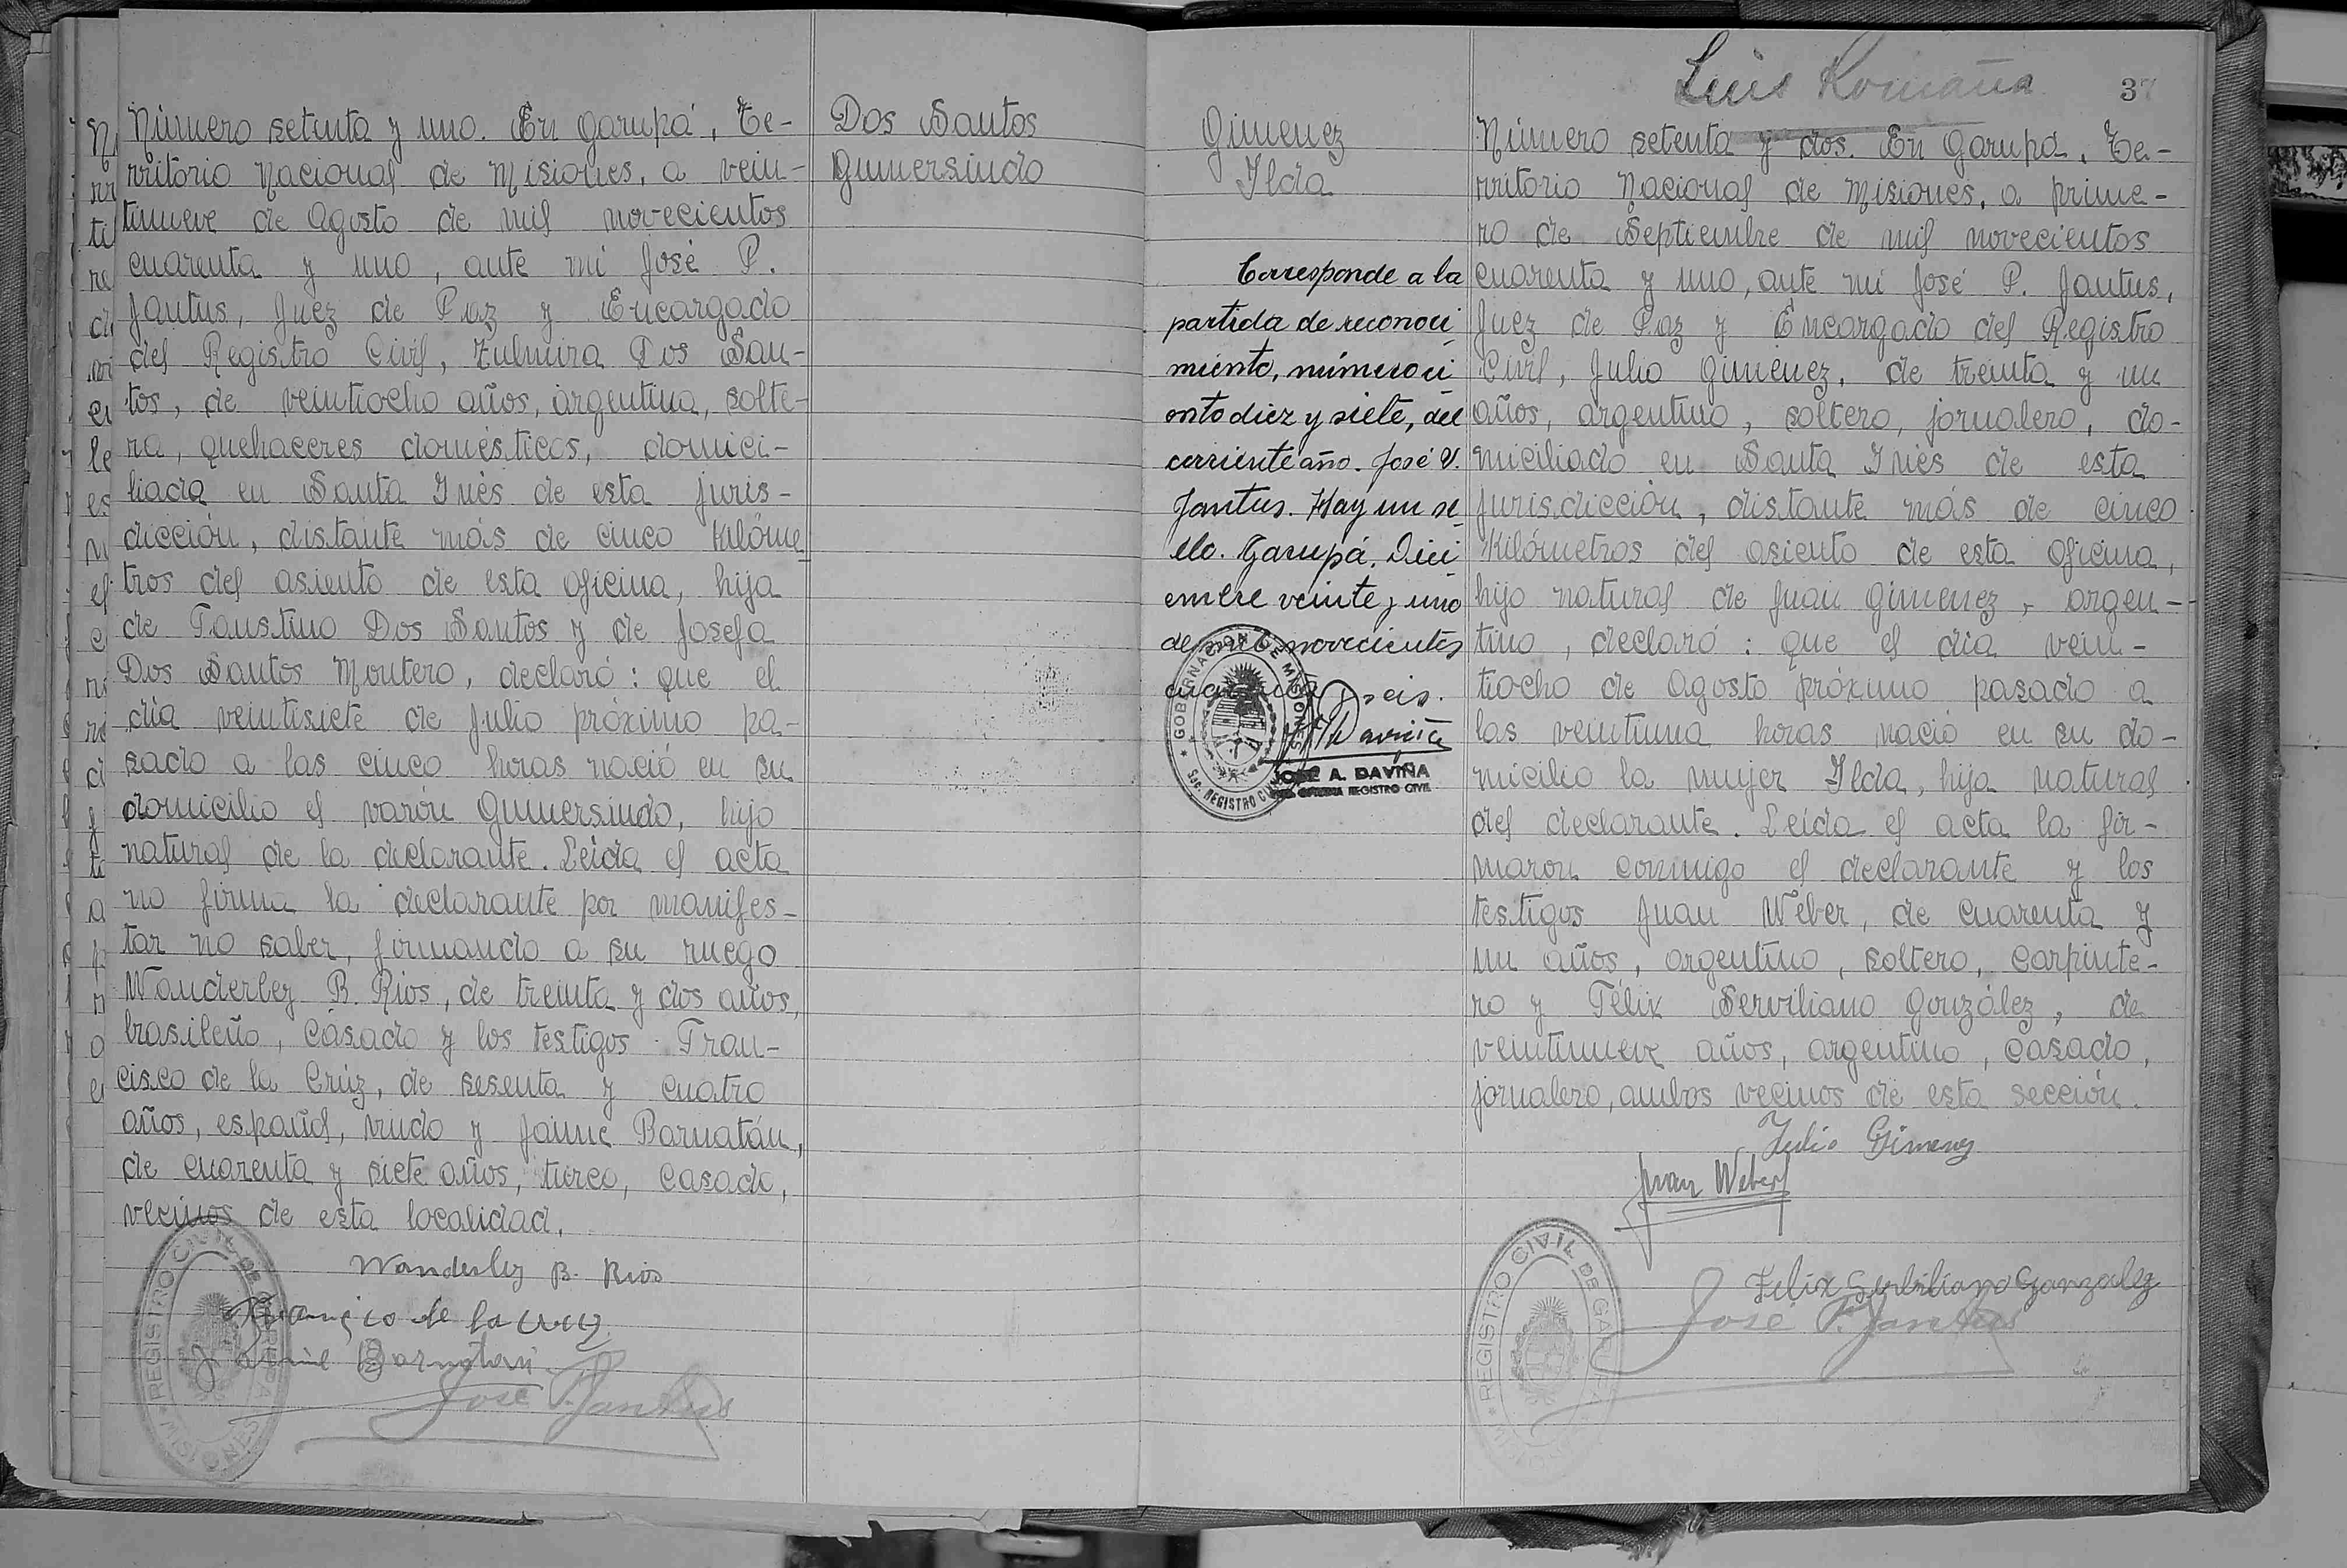 Dos Santos
Gumersindo
Número setenta y uno. En Garupá, Te-
rritorio Nacional de Misiones, a vein-
tinueve de Agosto de mil novecientos
cuarenta y uno, ante mi José P.
Jantus, Juez de Paz y Encargado
del Registro Civil, Zulmira Dos San-
tos, de veintiocho años, argentina, solte-
ra, quehaceres domésticos, domici-
liada en Santa Inés de esta juris-
dicción, distante más de cinco kilóme-
tros del asiento de esta oficina, hija
de Faustino Dos Santos y de Josefa
Dos Santos Montero, declaró: que el
día veintisiete de Julio próximo pa-
sado a las cinco horas nació en su
domicilio el varón Gumersindo, hijo
natural de la declarante. Leída el acta
no firma la declarante por manifes-
tar no saber, firmando a su ruego
Wanderley B. Rios, de treinta y dos años,
brasileño, casado y los testigos Fran-
cisco de la Crúz, de sesenta y cuatro
años, español, viudo y Jaime Barnatán,
de cuarenta y siete años, turco, casado,
vecinos de esta localidad.
Wanderley B. Rios
Francisco de la Cruz
Jaime Barnatan
José P. Jantus
REGISTRO CIVIL DE GARUPA
MISIONES
Luis Romaña
37
Gimenez
Ilda
Corresponde a la
partida de reconoci
miento, número ci
ento diez y siete, del
corriente año. José P.
Jantus. Hay un se
llo. Garupá, Dici
embre veinte y uno
de mil novecientos
cuarenta y seis.
GOBERNACION DE MISIONES
Sec. REGISTRO CIVIL
JOSÉ A. DAVIÑA
REGISTRO CIVIL
Número setenta y dos. En Garupá, Te-
rritorio Nacional de Misiones, a prime-
ro de Septiembre de mil novecientos
cuarenta y uno, ante mi José P. Jantus,
Juez de Paz y Encargado del Registro
Civil, Julio Gimenez, de treinta y un
años, argentino, soltero, jornalero, do-
miciliado en Santa Inés de esta
jurisdicción, distante más de cinco
kilómetros del asiento de esta oficina,
hijo natural de Juan Gimenez, argen-
tino, declaró: que el día vein-
tiocho de Agosto próximo pasado a
las veintiuna horas nació en su do-
micilio la mujer Ilda, hija natural
del declarante. Leída el acta la fir-
maron conmigo el declarante y los
testigos Juan Weber, de cuarenta y
un años, argentino, soltero, carpinte-
ro y Félix Serviliano González, de
veintinueve años, argentino, casado,
jornalero, ambos vecinos de esta sección.
Julio Gimenez
Juan Weber
Felix Serbiliano Gonzalez
José P. Jantus
REGISTRO CIVIL DE GARUPA